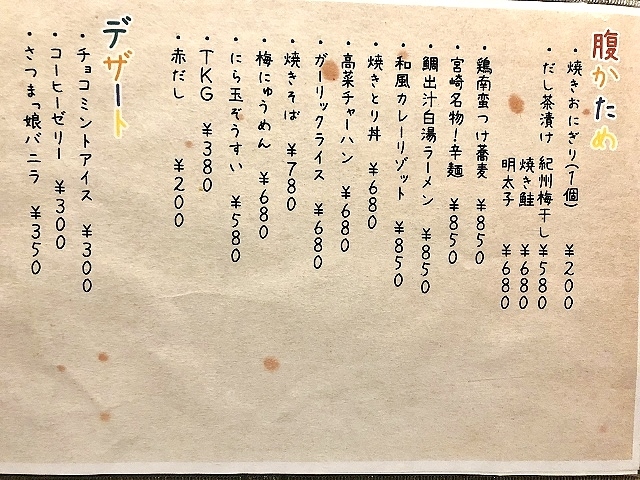 腹かため
・焼きおにぎり(1個) ¥200
・だし茶漬け 紀州梅干し ¥580
焼き鮭 ¥680
明太子 ¥680
・鶏南蛮つけ蕎麦 ¥850
・宮崎名物！辛麺 ¥850
・鯛出汁白湯ラーメン ¥850
・和風カレーリゾット ¥850
・焼きとり丼 ¥680
・高菜チャーハン ¥680
・ガーリックライス ¥680
・焼きそば ¥780
・梅にゅうめん ¥680
・にら玉ぞうすい ¥580
・TKG ¥380
・赤だし ¥200
デザート
・チョコミントアイス ¥300
・コーヒーゼリー ¥300
・さつまっ娘バニラ ¥350